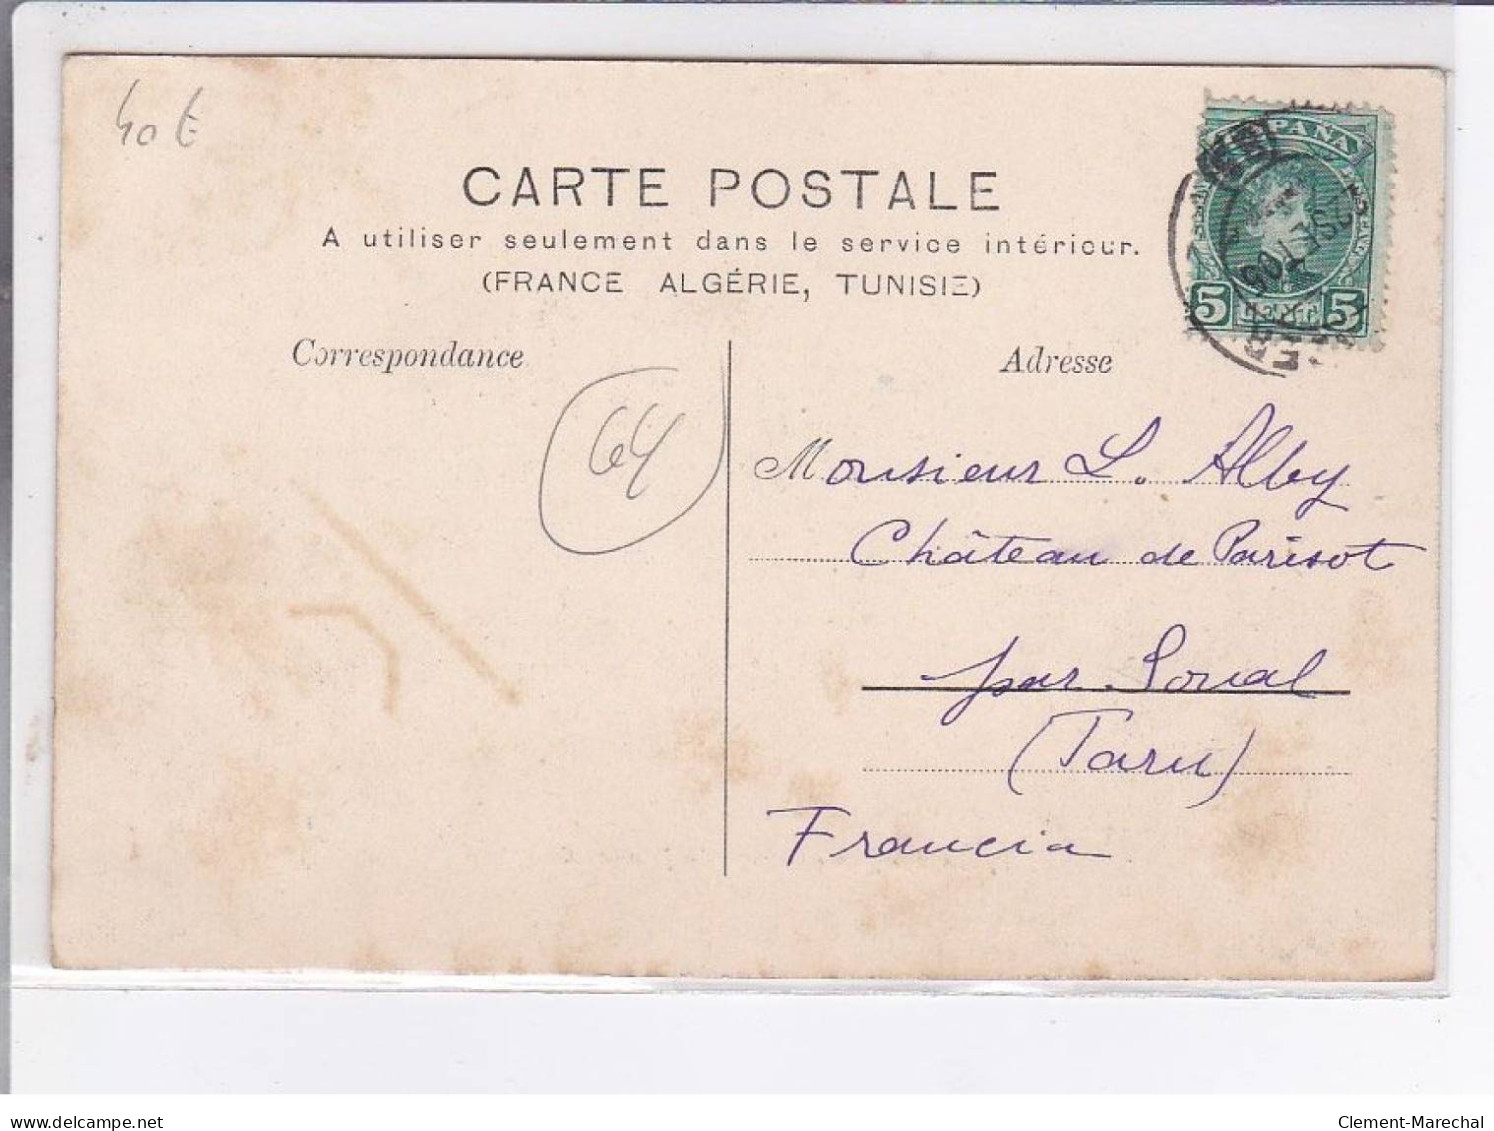 40 €
CARTE POSTALE
A utiliser seulement dans le service intérieur.
(FRANCE ALGÉRIE, TUNISIE)
ESPAÑA
5 CENT. 5
Correspondance
Adresse
64
Monsieur L. Alby
Château de Parisot
par Soual
(Tarn)
Francia
delcampe.net
Clement-Marechal